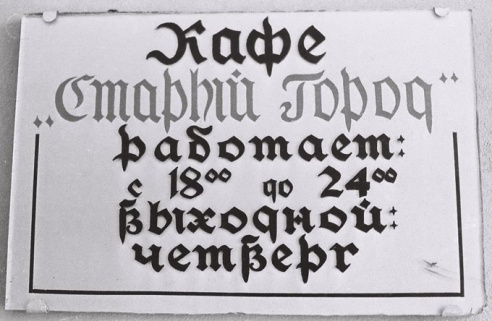 Кафе
„Старый Город"
работает:
с 18⁰⁰ до 24⁰⁰
выходной:
четверг